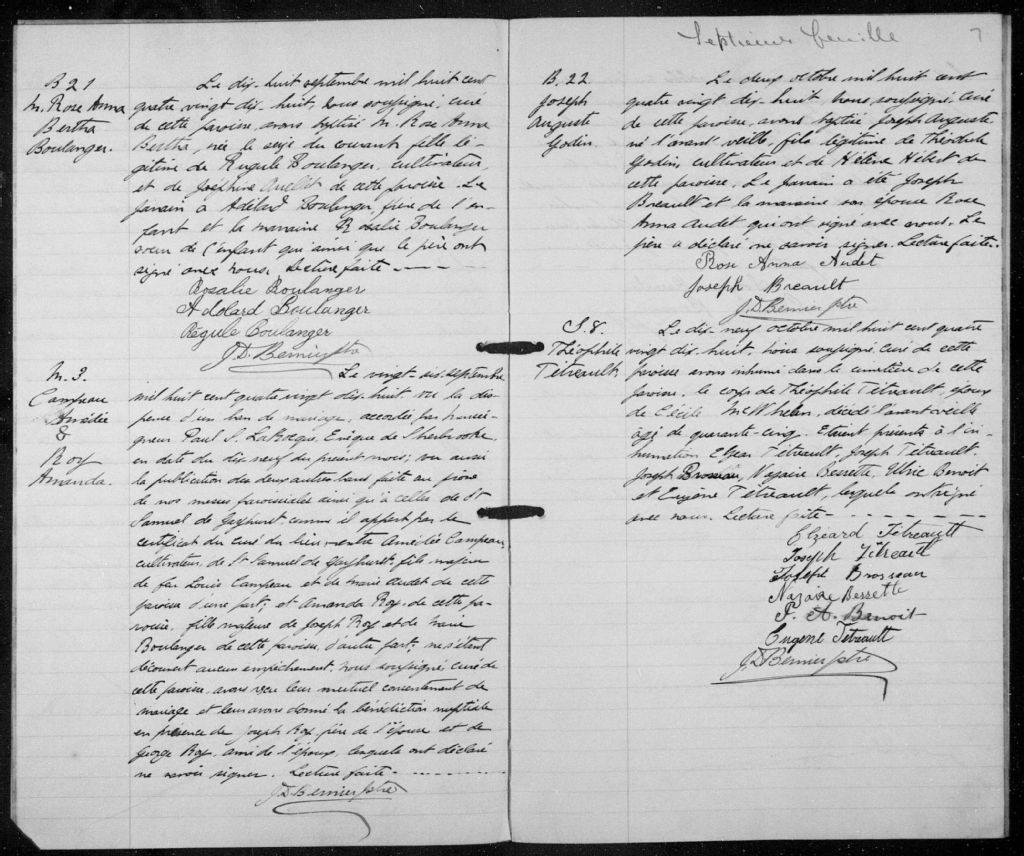 B 21
M. Rose Anna
Bertha
Boulanger.
Le dix-huit septembre mil huit cent
quatre vingt dix-huit, nous soussigné, curé
de cette paroisse, avons baptisé M. Rose Anna
Bertha, née le seize du courant, fille lé-
gitime de Régule Boulanger, cultivateur,
et de Joséphine de cette paroisse. Le
parrain a Adélard Boulanger, frère de l'en-
fant et la marraine Rosalie Boulanger
soeur de l'enfant qui ainsi que le père ont
signé avec nous. Lecture faite.
Rosalie Boulanger
Adolard Boulanger
Régule Boulanger
J.D. Bernier, ptre
M. 3.
Campeau
Amédée
&
Roy
Amanda.
Le vingt six septembre
mil huit cent quatre vingt dix huit, vu la dis-
pense d'un ban de mariage, accordée par Monsei-
gneur Paul S. LaRocque, Evêque de Sherbrooke,
en date du dix-neuf du présent mois; vu aussi
la publication des deux autres bans faite au prône
de nos messes paroissiales ainsi qu'à celles de St
Samuel de Gayhurst comme il appert par le
certificat du curé du lieu, entre Amédée Campeau,
cultivateur, de St Samuel de Gayhurst, fils majeur
de feu Louis Campeau et de Marie Audet de cette
paroisse d'une part; et Amanda Roy, de cette pa-
roisse, fille majeure de Joseph Roy et de Marie
Boulanger de cette paroisse, d'autre part; ne s'étant
découvert aucun empêchement, nous soussigné curé de
cette paroisse, avons reçu leur mutuel consentement de
mariage et leur avons donné la bénédiction nuptiale
en présence de Joseph Roy, père de l'épouse et de
George Roy, ami de l'époux, lesquels ont déclaré
ne savoir signer. Lecture faite.
J.D. Bernier, ptre
Septième feuille
7
B. 22.
Joseph
Auguste
Godin.
Le deux octobre mil huit cent
quatre vingt dix-huit, nous soussigné, curé
de cette paroisse, avons baptisé Joseph Auguste
né l'avant veille, fils légitime de Théodule
Godin, cultivateur et de Hélène Hébert de
cette paroisse. Le parrain a été Joseph
Breault et la marraine son épouse Rose
Anna Audet qui ont signé avec nous. Le
père a déclaré ne savoir signer. Lecture faite.
Rose Anna Audet
Joseph Breault
J.D. Bernier, ptre
S. 8.
Théophile
Tétreault
Le dix-neuf octobre mil huit cent quatre
vingt dix-huit, nous soussigné, curé de cette
paroisse avons inhumé dans le cimetière de cette
paroisse, le corps de Théophile Tétreault, époux
de Cécile McWhelen, décédé l'avant-veille
âgé de quarante-cinq. Etaient présents à l'in-
humation Elzéar Tétreault, Joseph Tétreault,
Joseph Brosseau, Nazaire Bessette, Ulric Benoit
et Eugène Tétreault, lesquels ont signé
avec nous. Lecture faite.
Elzéard Tétreault
Joseph Tétreault
Joseph Brosseau
Nazaire Bessette
A. Benoit
Eugène Tétreault
J.D. Bernier, ptre